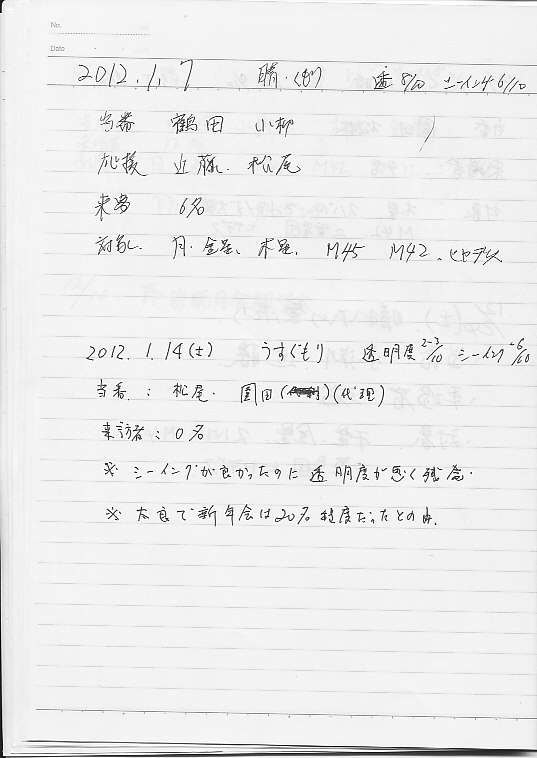 No.
Date
2012.1.7 晴・くもり 透 8/10 シーイング 6/10
当番 鶴田 小柳
応援 近藤、松尾
来客 6名
対象 月・金星、木星、M45 M42、ヒヤデス
2012.1.14(土) うすぐもり 透明度 2-3/10 シーイング -6/10
当番：松尾・園田( )(代理)
来訪者：0名
※ シーイングが良かったのに透明度が悪く残念.
※ 太良で新年会は20名程度だったとの由.